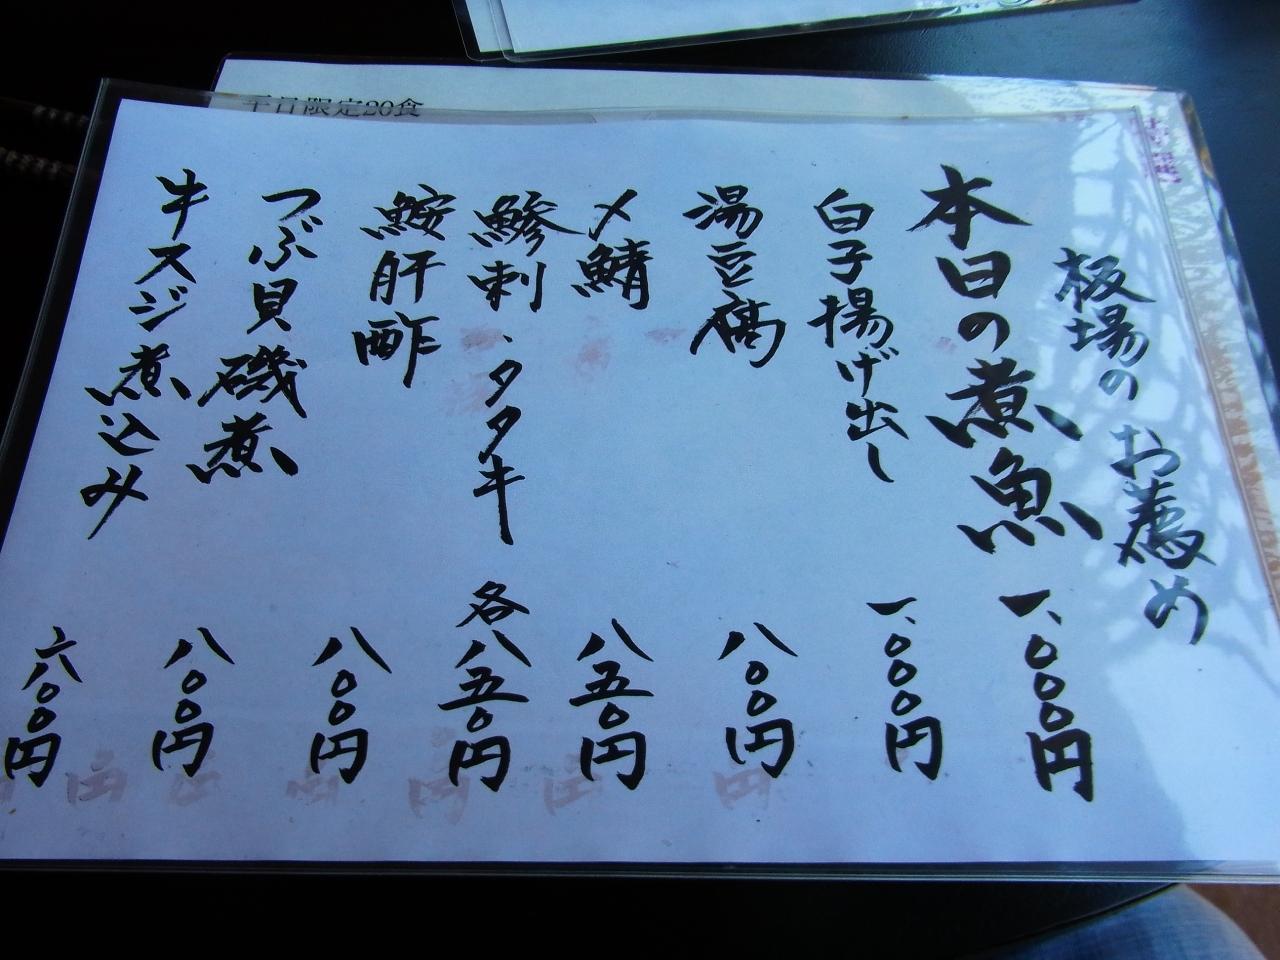 平日限定20食
板場のお薦め
本日の煮魚 一、〇〇〇円
白子揚げ出し 一、〇〇〇円
湯豆腐 八〇〇円
〆鯖 八五〇円
鯵刺、タタキ 各八五〇円
鮟肝酢 八〇〇円
つぶ貝磯煮 八〇〇円
牛スジ煮込み 六八〇〇円